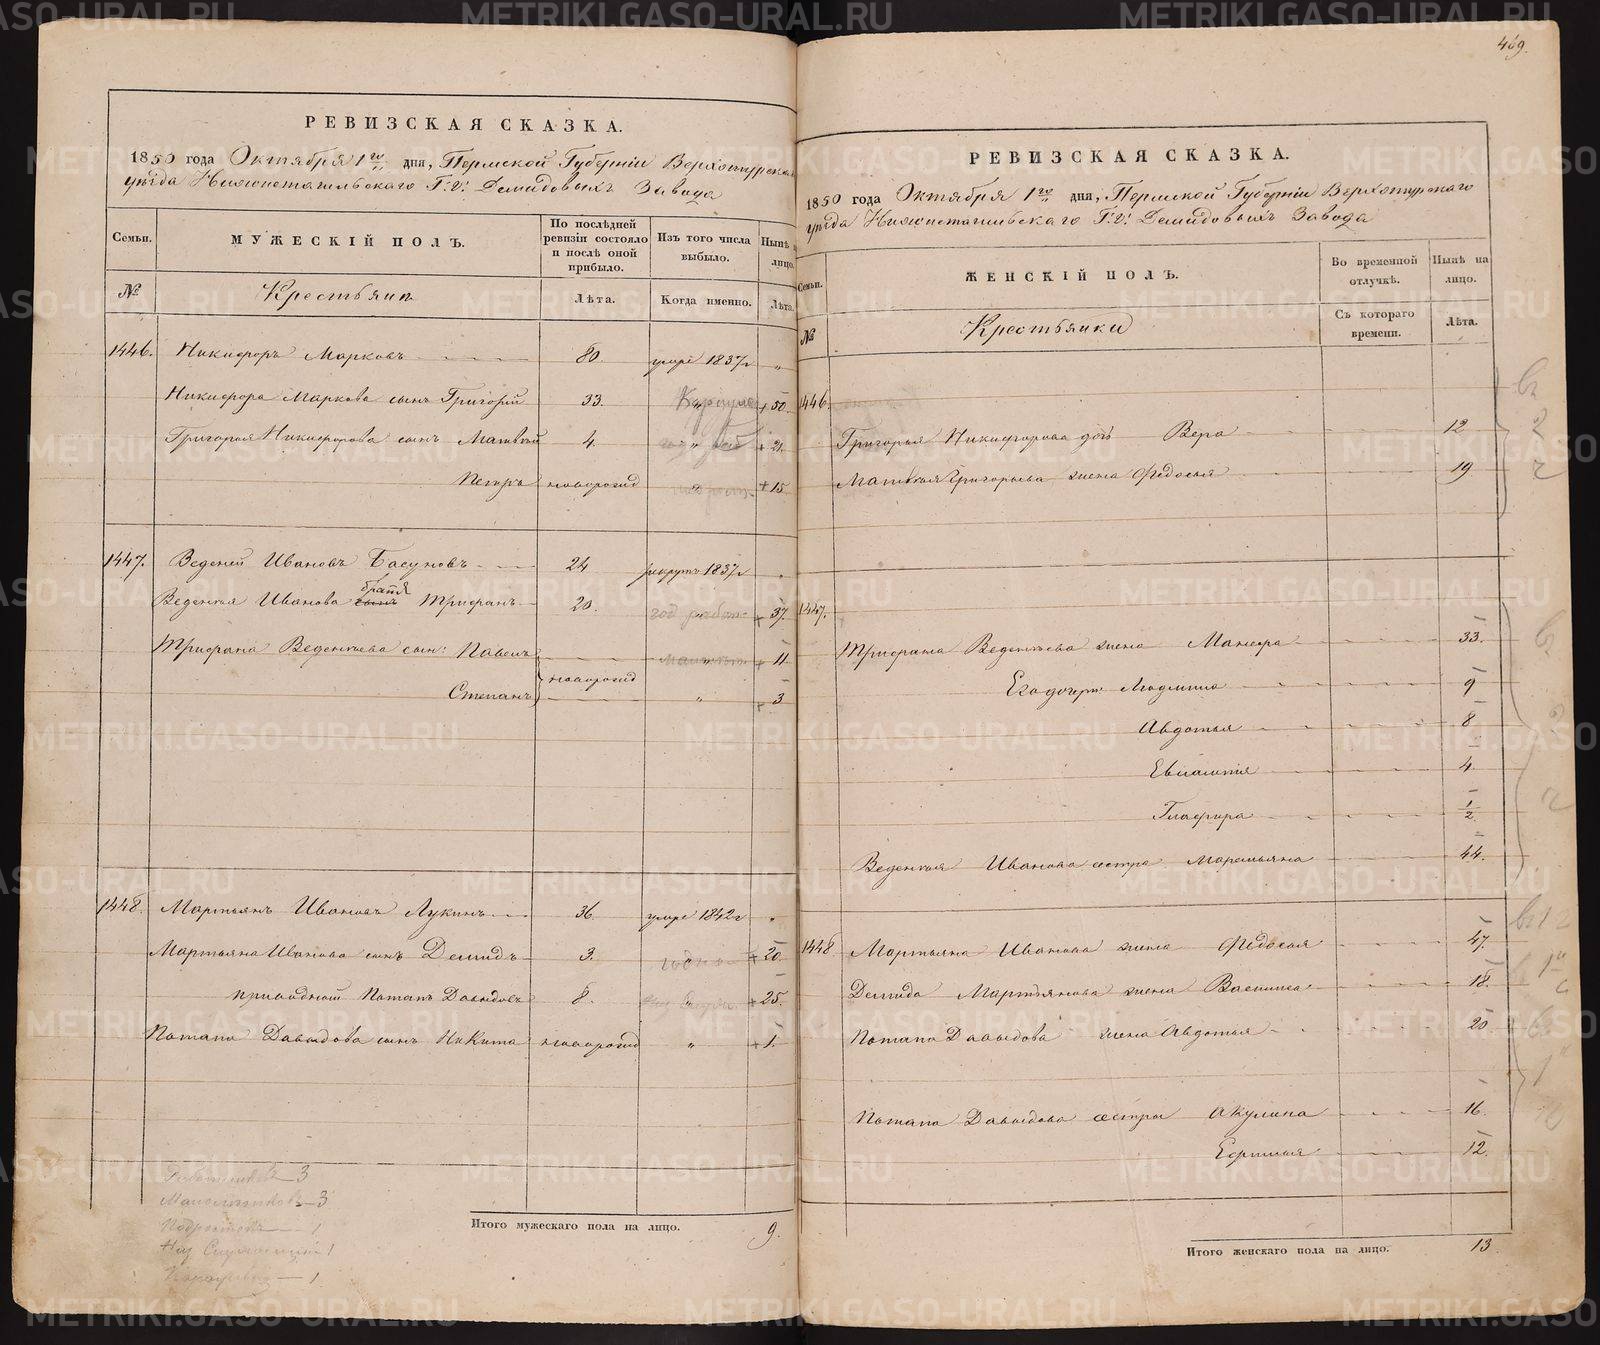 469.
РЕВИЗСКАЯ СКАЗКА.
1850 года Октября 1го дня, Пермской Губерніи Верхотурскаго
уѣзда Нижнетагильскаго Г.г. Демидовыхъ Завода
Семьи. МУЖЕСКІЙ ПОЛЪ. По послѣдней ревизіи состояло и послѣ оной прибыло. Изъ того числа выбыло. Нынѣ на лицо.
№ Крестьяни Лѣта. Когда именно. Лѣта.
1446. Никифоръ Марковъ 80. умре 1837г „
Никифора Маркова сынъ Григорій 33. „ +50.
Григорья Никифорова сынъ Матвѣй 4. „ +21.
Петръ новорожд „ +15
1447. Веденей Ивановъ Басуновъ 24 рекрутъ 1837г „
Веденѣя Иванова сынъ братъ Трифанъ 20. год работ +37.
Трифана Веденѣева сын: Павелъ новорожд „ +11
Степанъ „ +3
1448. Мартьянъ Ивановъ Лукинъ 36. умре 1842г „
Мартьяна Иванова сынъ Демидъ 3. годно +20.
приводной Потапъ Давыдовъ 8. „ +25.
Потапа Давыдова сынъ Никита новорожд „ +1.
Работников 3
Малолѣтковъ 3
Подростков 1
1
1
Итого мужескаго пола на лицо. 9.
РЕВИЗСКАЯ СКАЗКА.
1850 года Октября 1го дня, Пермской Губерніи Верхотурскаго
уѣзда Нижнетагильскаго Г.г. Демидовыхъ Завода
Семьи. ЖЕНСКІЙ ПОЛЪ. Во временной отлучкѣ. Нынѣ на лицо.
№ Крестьянки Съ котораго времени. Лѣта.
1446.
Григорья Никифорова дочь Вера 12
Матвѣя Григорьева жена Федосья 19
1447.
Трифана Веденѣева жена Манефа 33.
Его дочери: Людмила 9
Авдотья 8
Евлампія 4.
Глафира 1/2
Веденѣя Иванова сестра Маремьяна 44.
1448 Мартьяна Иванова жена Федосья 47.
Демида Мартьянова жена Васииса 18.
Потапа Давыдова жена Авдотья 20
Потапа Давыдова сестры Акулина 16.
Ефимья 12.
Итого женскаго пола на лицо. 13
METRIKI.GASO-URAL.RU